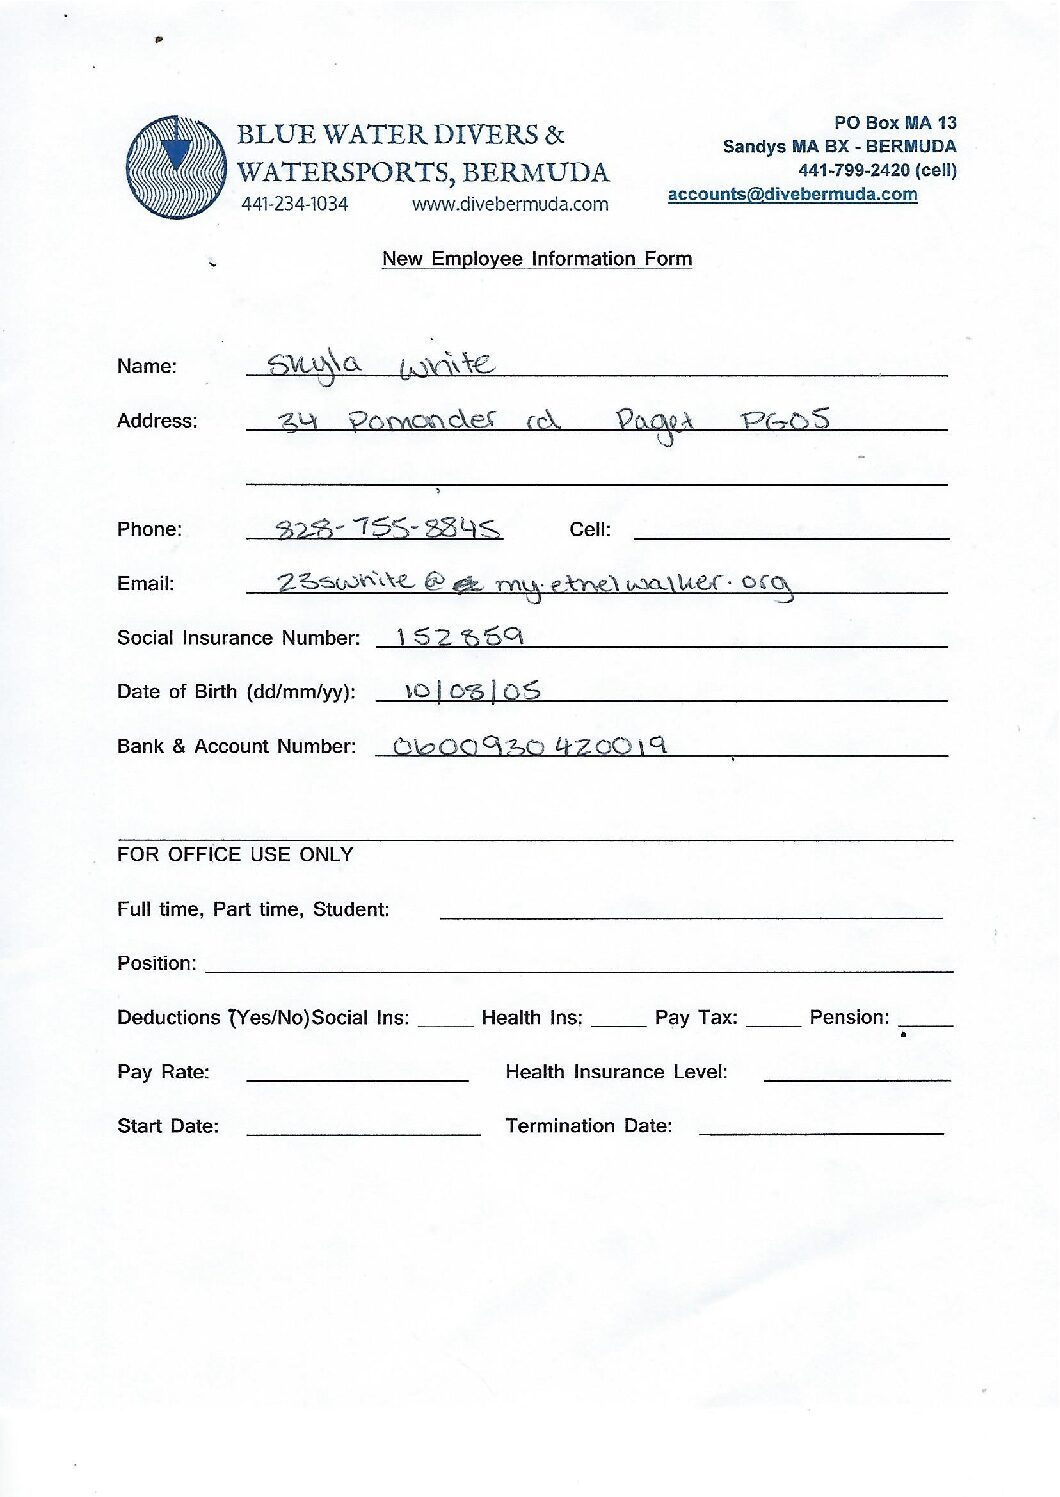 BLUE WATER DIVERS &
WATERSPORTS, BERMUDA
441-234-1034 www.divebermuda.com
PO Box MA 13
Sandys MA BX - BERMUDA
441-799-2420 (cell)
accounts@divebermuda.com
New Employee Information Form
Name: Skyla White
Address: 34 Pomander rd Paget PG05
Phone: 828-755-8845 Cell:
Email: 23swhite@my.ethelwalker.org
Social Insurance Number: 152859
Date of Birth (dd/mm/yy): 10/08/05
Bank & Account Number: 0600930420019
FOR OFFICE USE ONLY
Full time, Part time, Student:
Position:
Deductions (Yes/No)Social Ins: Health Ins: Pay Tax: Pension:
Pay Rate: Health Insurance Level:
Start Date: Termination Date: